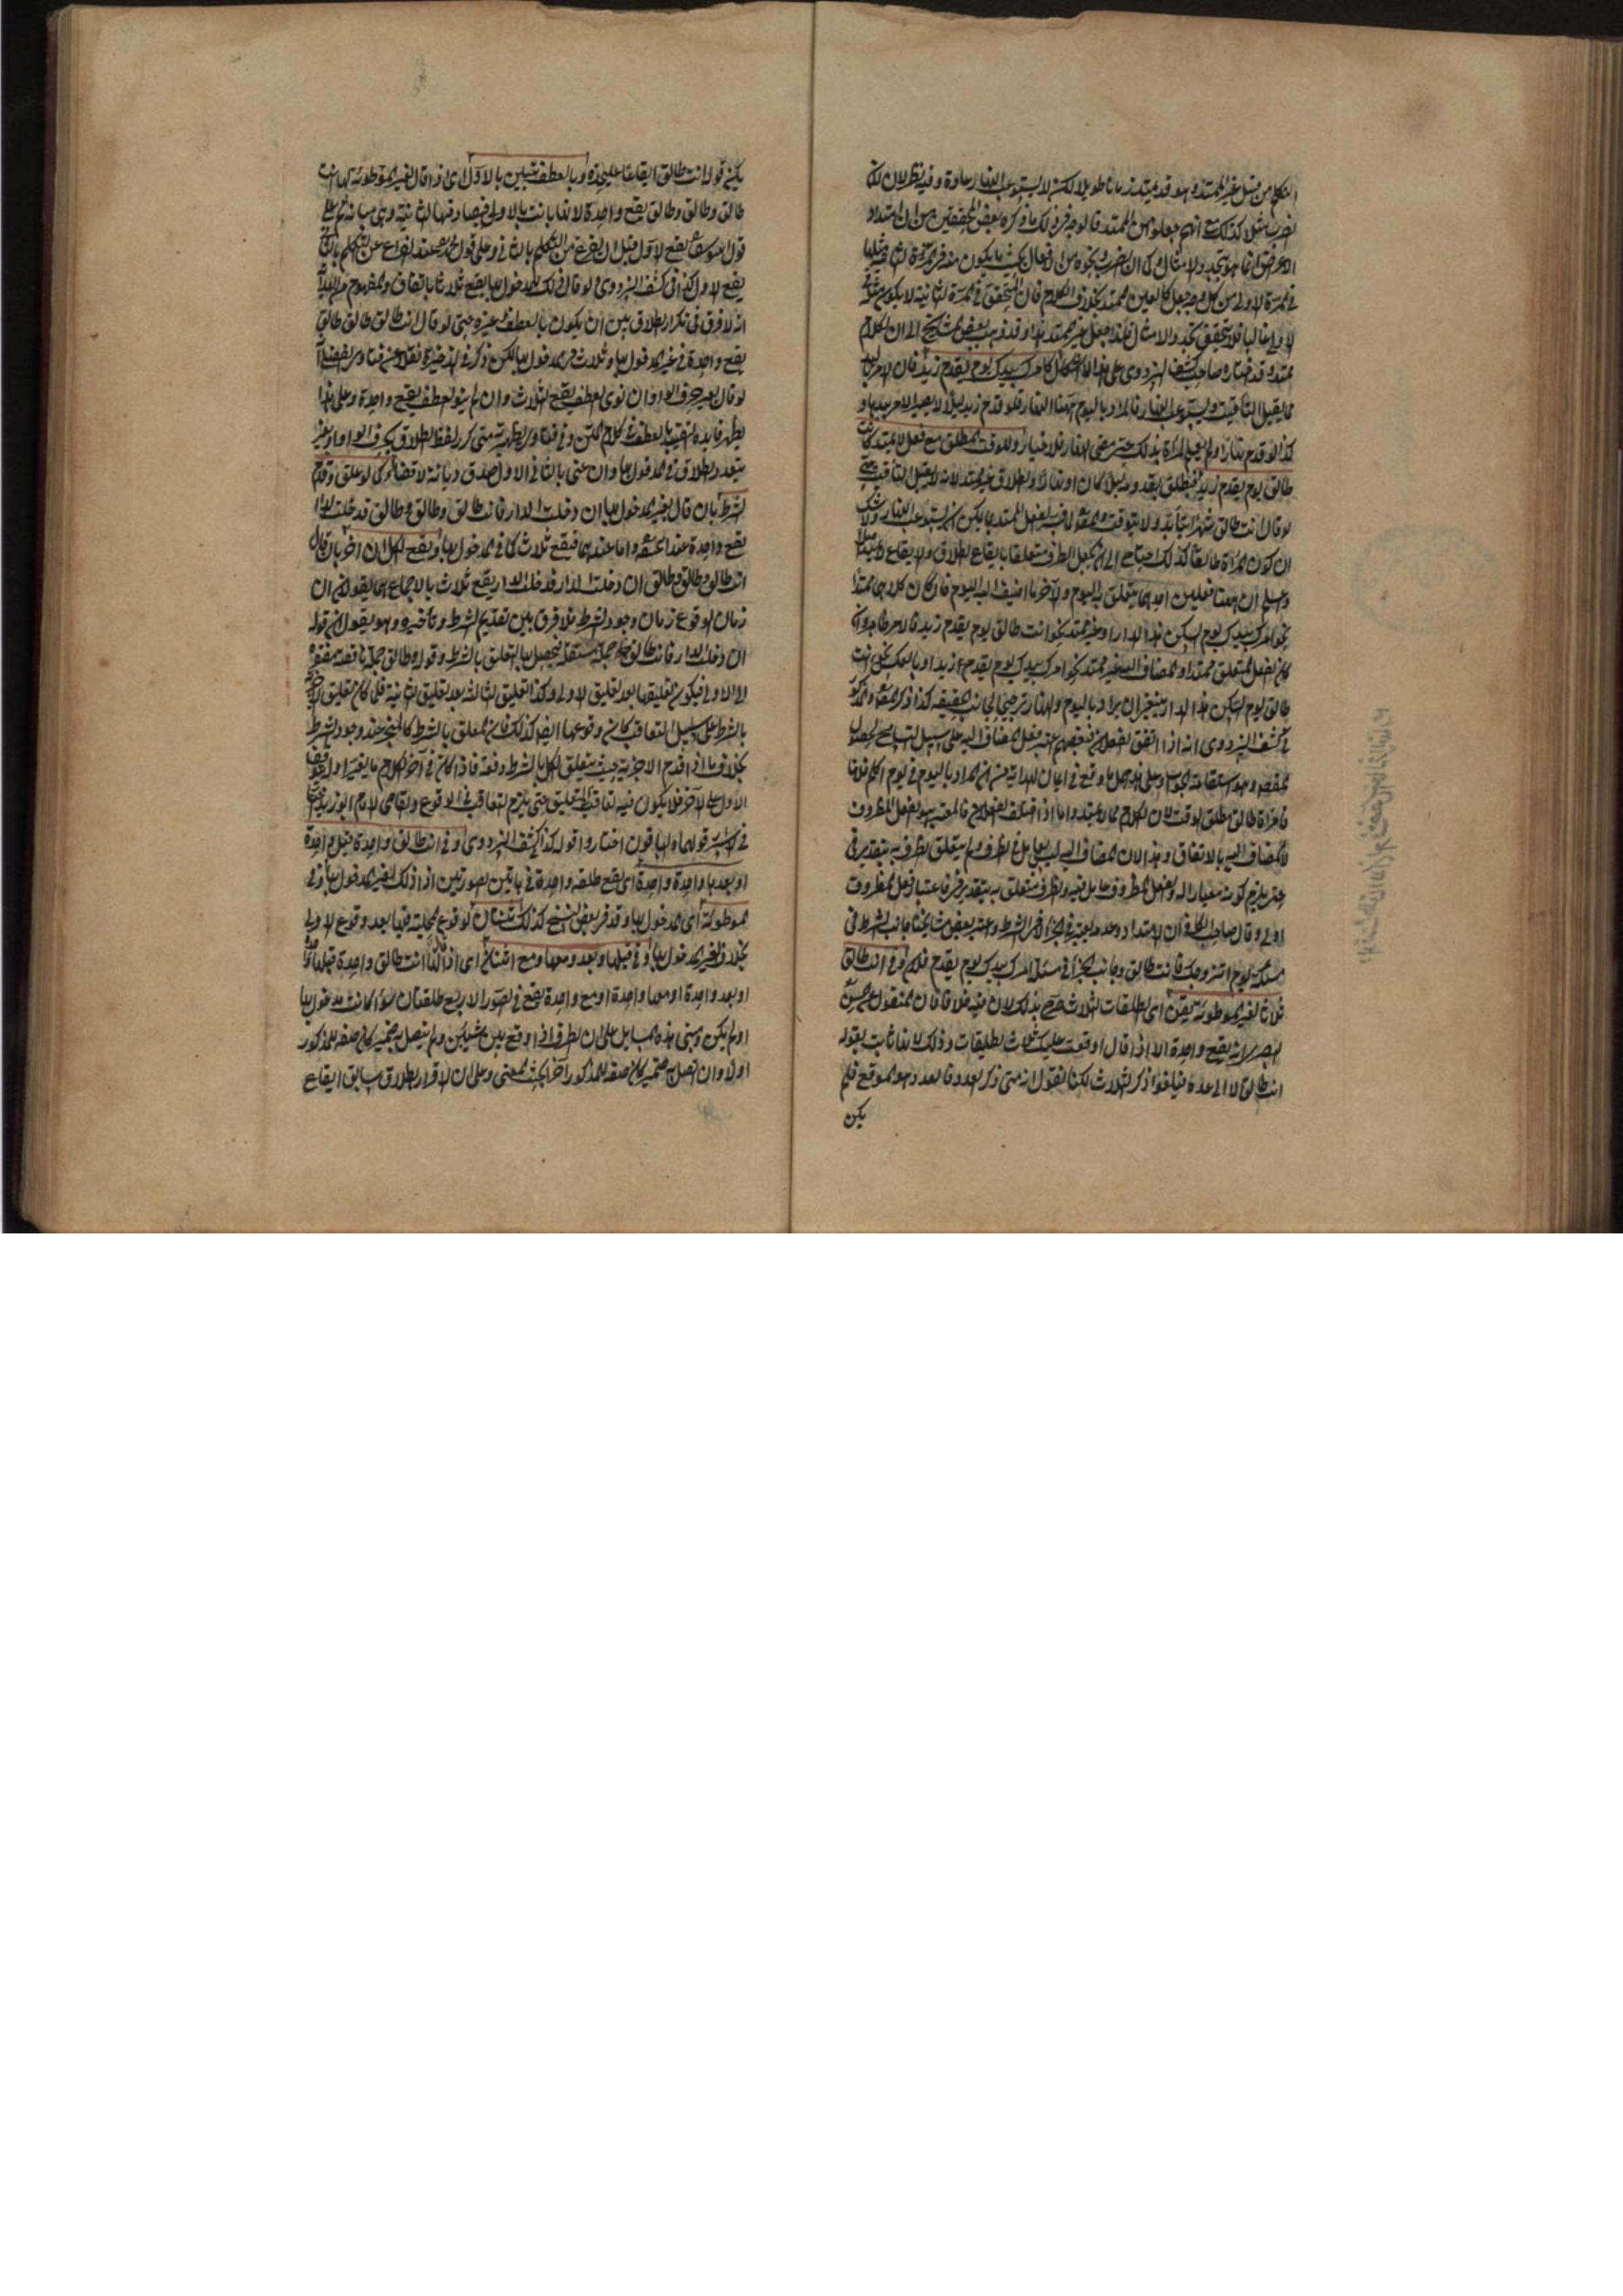 التكلم من قبيل غير الممتد وهو قد يمتد زمانا طويلا لكنه لا يستوعب النهار عادة وفيه نظر لان
الضرب مثلا كذلك مع انهم جعلوه من الممتد فالوجه في ذلك ما ذكره بعض المحققين من ان امتداد
الاعراض انما هو بتجدد الامثال
في المرة الاولى من كل وجه جعل كالعين الممتد بخلاف الكلام فان المتحقق في المرة الثانية لا يكون مثله
الاول غالبا فلا يتحقق تجدد الامثال فلهذا جعل غير الممتد هذا وقد ذهب بعض المشايخ الى ان الكلام
ممتد وقد اختاره صاحب كشف البزدوي على هذا الاشكال كامرك بيدك يوم يقدم زيد فان الامر باليد
مما يقبل التأقيت ويستوعب النهار فالمراد باليوم ههنا النهار فلو قدم زيد ليلا لا يصير الامر بيدها و
كذا لو قدم نهارا ولم يعلم المرأة بذلك حتى مضى النهار فلا خيار وللوقت المطلق مع فعل لا يمتد كانت
طالق يوم يقدم زيد فتطلق بقدومه ليلا كان او نهارا والطلاق غير ممتد لانه لا يقبل التأقيت حتى
لو قال انت طالق شهرا يتأبد ولا يتوقت
ان كون المرأة طالقا كذلك احتاج الى ان يجعل الظرف متعلقا بايقاع الطلاق والايقاع لا يمتد
واعلم ان ههنا فعلين احدهما يتعلق به اليوم والآخر ما اضيف اليه اليوم فان كان كلاهما ممتدا
نحو امرك بيدك يوم اسكن هذا الدار او غير ممتد نحو انت طالق يوم يقدم زيد فالامر ظاهر وان
كان الفعل المتعلق ممتدا والمضاف اليه غير ممتد نحو امرك بيدك يوم يقدم زيد او بالعكس نحو انت
طالق يوم اسكن هذا الدار فينبغي ان يراد باليوم النهار ترجيحا لجانب الحقيقة كذا ذكر
في كشف البزدوي انه اذا اتفق الفعلان فبعضهم اعتبر فعل المضاف اليه على سبيل التسامح لحصول
المقصود وهو استقامة الجواب وعلى هذا يحمل ما وقع في ايمان الهداية من ان المراد باليوم في يوم اكلم فلانا
فامرأة طالق مطلق الوقت لان الكلام مما لا يمتد واما اذا اختلف الفعلان فالمعتبر هو الفعل المظروف
لا المضاف اليه بالاتفاق وهذا لان المضاف اليه ليس بعامل في الظرف ولم يتعلق الظرف به بتقدير في
حتى يلزم كونه معيارا له والفعل المظروف عامل فيه والظرف متعلق به بتقدير في فاعتبار فعل المظروف
اولى وقال صاحب الكافي ان الامتداد وعدمه يعتبر في الجزاء لا في الشرط واعتبر بعض مشايخنا جانب الشرط في
مسئلة يوم اتزوجك فانت طالق وجانب الجزاء في مسئلة امرك بيدك يوم يقدم فلان وفي انت طالق
ثلاثا لغير الموطوءة يقعن اى الطلقات الثلاث صرح بذلك لان فيه خلافا فان المنقول عن الحسن
البصري انه يقع واحدة الا اذا قال اوقعت عليك ثلاث تطليقات وذلك لانها تبين بقوله
انت طالق لا الى عدة فيلغو ذكر الثلاث لكنا نقول انه متى ذكر العدد فالعدد هو الموقع فلم
يكن
يكن قوله انت طالق ايقاعا عليحدة وبالعطف تبين بالاول اى اذا قال لغير الموطوءة انت
طالق وطالق وطالق يقع واحدة لانها بانت بالاولى فيصادفها الثانية وهي مبانة ثم على
قول ابى يوسف يقع الاول قبل ان يفرغ من التكلم بالثاني وعلى قول محمد عند الفراغ عن التكلم بالثاني
يقع الاول كذا في كشف البزدوي ولو قال ذلك للمدخول بها يقع ثلاثا بالاتفاق والمفهوم من الهداية
انه لا فرق في تكرار الطلاق بين ان يكون بالعطف وغيره حتى لو قال انت طالق طالق طالق
يقع واحدة في غير المدخول بها وثلاث في المدخول بها لكن ذكر في الذخيرة نقلا عن فتاوى
لو قال بغير حرف الواو ان نوى العطف يقع الثلاث وان لم ينو العطف يقع واحدة وعلى هذا
يظهر فايدة التقييد بالعطف في كلام المتن وفي فتاوى الظهيرية متى كرر لفظ الطلاق بحرف الواو او بغير
يتعدد الطلاق في المدخول بها وان عنى بالثاني الاول صدق ديانة لا قضاء كما لو علق وقدم
الشرط بان قال لغير المدخول بها ان دخلت الدار فانت طالق وطالق وطالق فدخلت الدار
يقع واحدة عند ابي حنيفة واما عندهما فيقع ثلاث كما في المدخول بها ويقع الكل ان اخر بان قال
انت طالق وطالق وطالق ان دخلت الدار فدخلت الدار يقع ثلاث بالاجماع هما يقولان ان
زمان الوقوع زمان وجود الشرط فلا فرق بين تقديم الشرط وتأخيره وهو يقول ان قوله
ان دخلت الدار فانت طالق جملة مستقلة فيحصل بها التعليق بالشرط وقوله وطالق جملة ناقصة مفتقرة
الى الاولى فيكون تعليقها بعد تعليق الاولى وكذا تعليق الثالثة بعد تعليق الثانية فلما كان تعليق الاجزية
بالشرط على سبيل التعاقب كان وقوعها ايضا كذلك فان المعلق بالشرط كالمنجز عند وجود الشرط
بخلاف ما اذا قدم الاجزية حيث يتعلق الكل بالشرط دفعة فاذا كان في آخر الكلام ما يغير اوله توقف
الاول على الآخر فلا يكون فيه تعاقب في التعليق حتى يلزم التعاقب في الوقوع والقاضي الامام ابو زيد
في الاسرار قولهما والباقون اختاروا قوله كذا في كشف البزدوي وفي انت طالق واحدة قبل واحدة
او بعدها واحدة واحدة اى يقع طلقة واحدة في هاتين الصورتين اذا ذلك لغير المدخول بها وفي
الموطوءة اى المدخول بها وقد في بعض النسخ كذلك ثنتان لوقوع المحلية فيها بعد وقوع الاولى
بخلاف الغير المدخول بها وفي قبلها وبعد ومعها ومع اثنتان اى اذا قال انت طالق واحدة قبلها واحدة
او بعد واحدة او معها واحدة او مع واحدة يقع في الصور الاربع طلقتان سواء كانت مدخول بها
اولم يكن ومبنى هذه المسايل على ان الظرف اذا وقع بين شيئين ولم يتصل به ضمير كان صفة للمذكور
اولا وان اتصل به ضمير كان صفة للمذكور آخرا بحيث المعنى وعلى ان الاقرار بطلاق سابق ايقاع